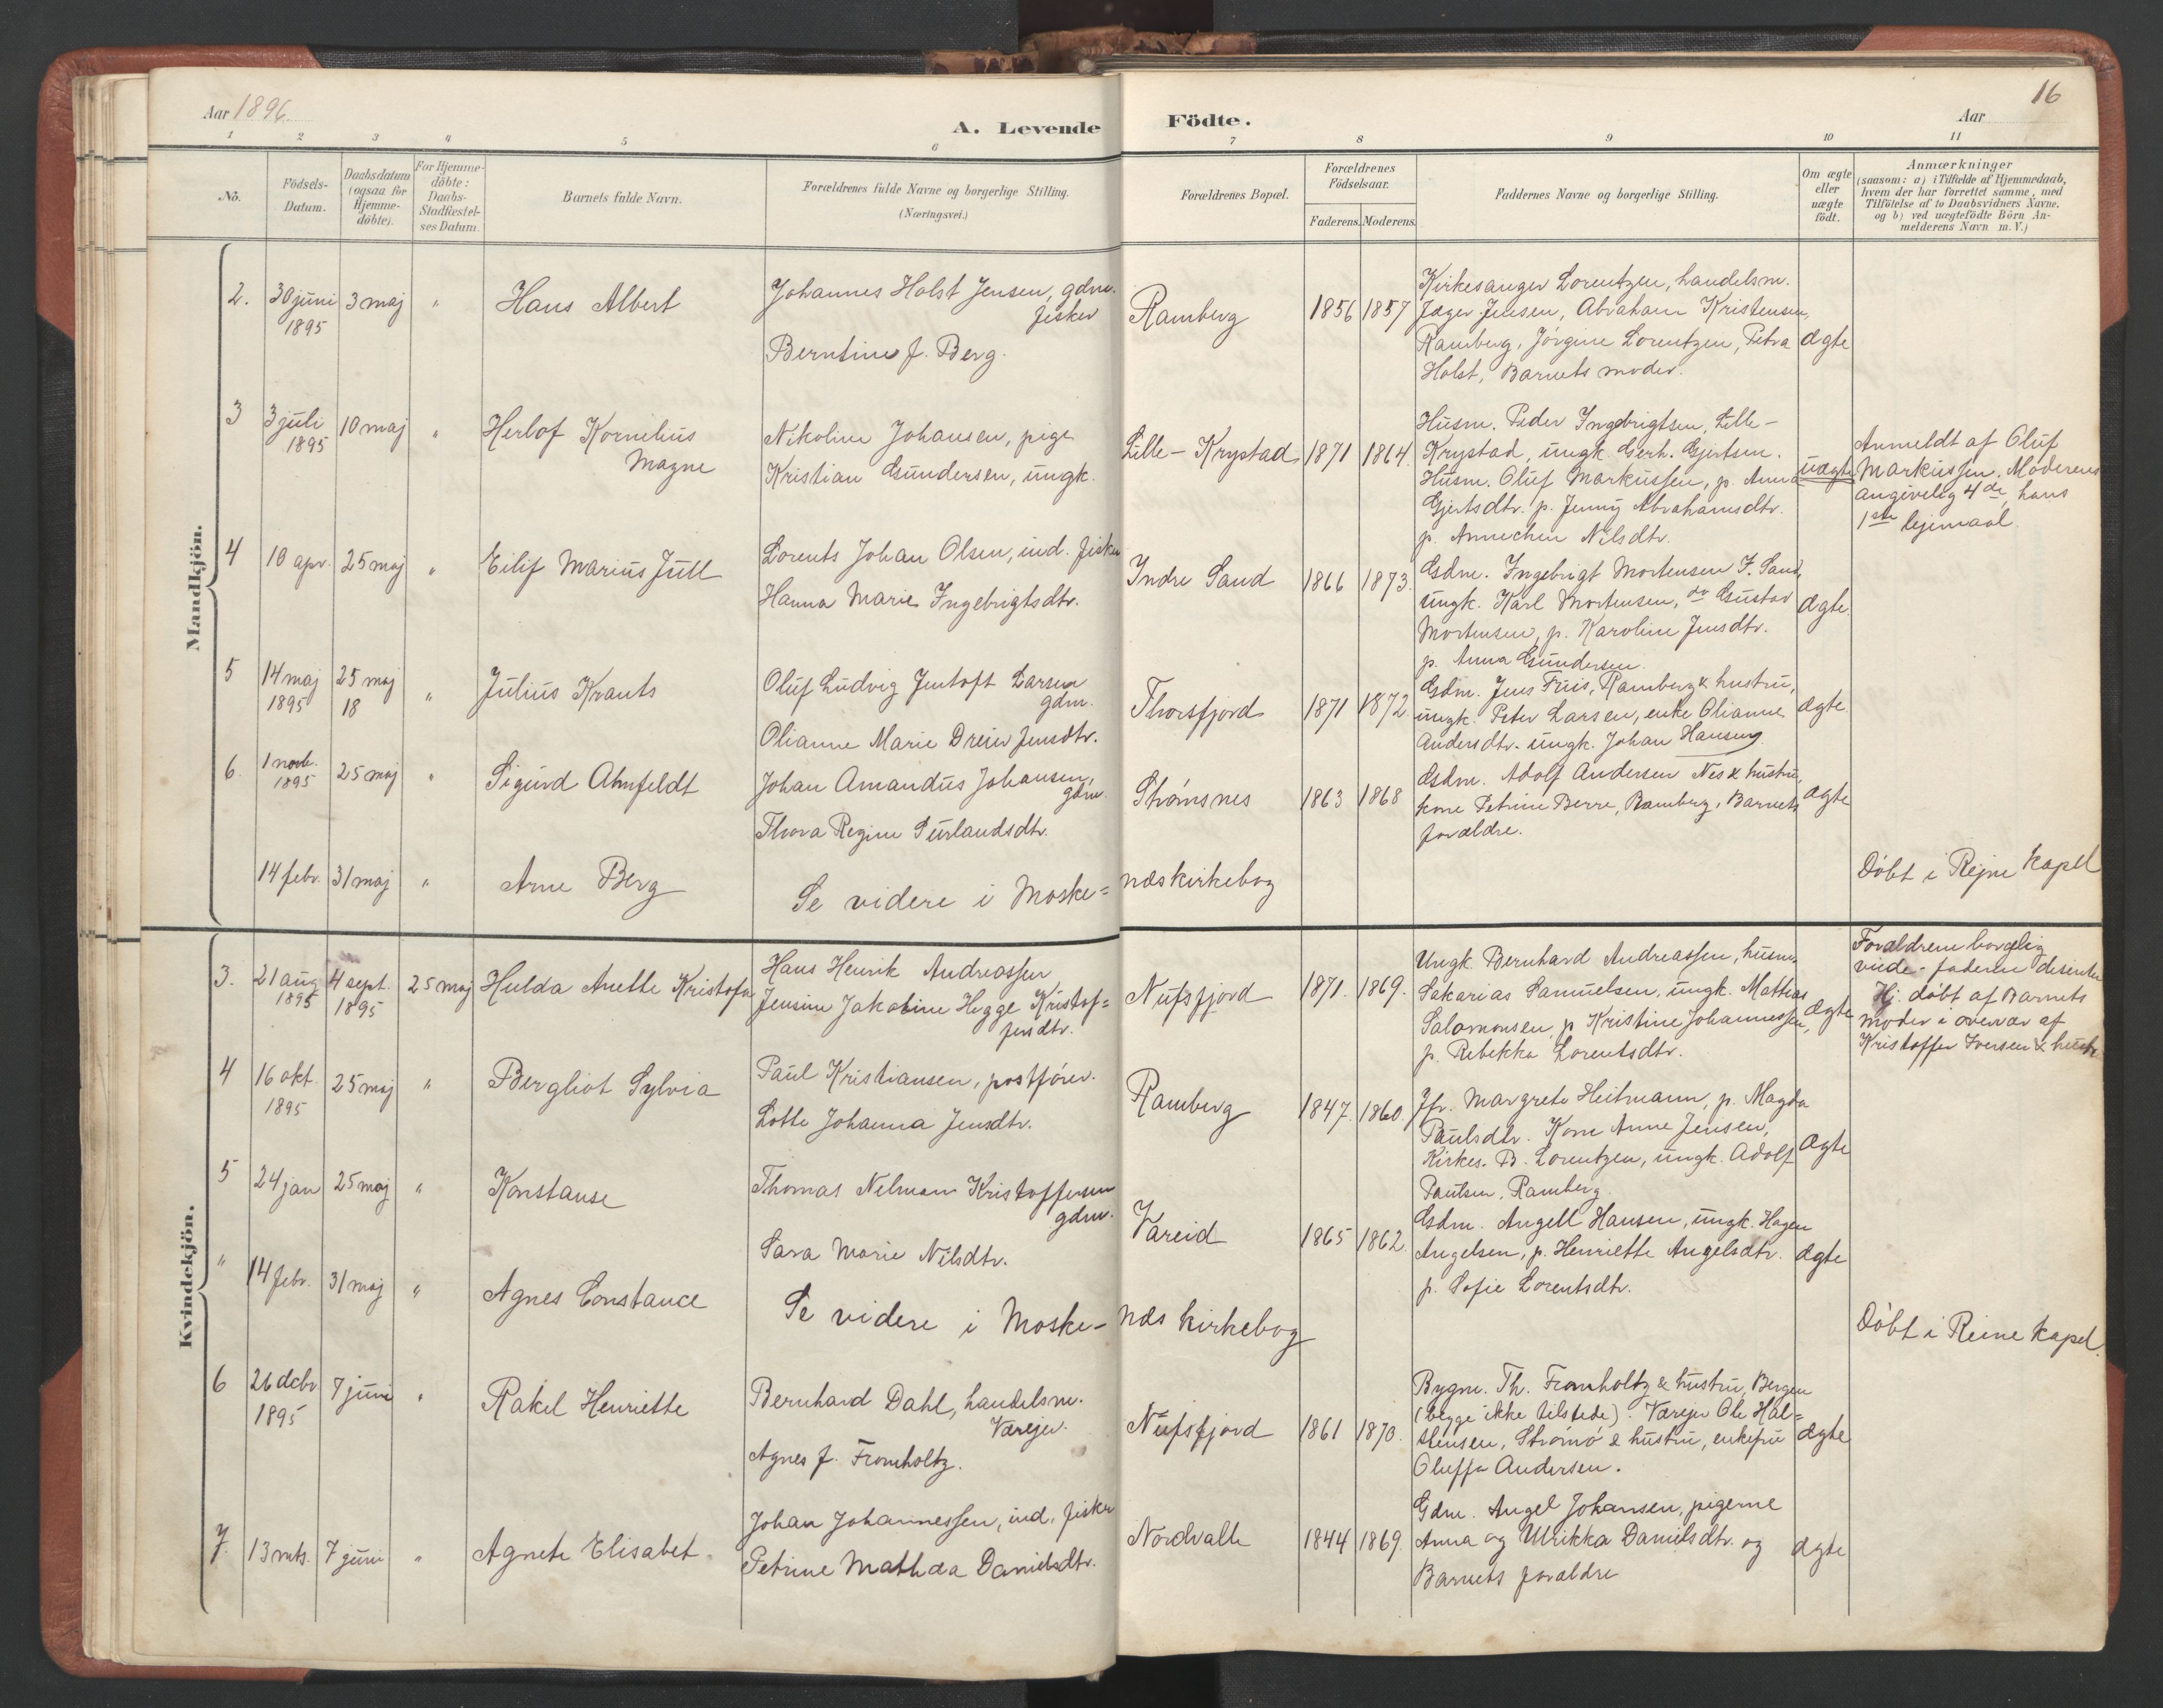 Aar 1896.
A. Levende Födte.
Aar
16
1 2 3 4 5 6 7 8 9 10 11
No.
Födsels-
Datum.
Daabsdatum
(ogsaa for
Hjemme-
döbte).
For Hjemme-
döbte:
Daabs-
Stadfæstel-
ses Datum.
Barnets fulde Navn.
Forældrenes fulde Navne og borgerlige Stilling.
(Næringsvei.)
Forældrenes Bopæl.
Forældrenes
Födselsaar.
Faderens. Moderens.
Faddernes Navne og borgerlige Stilling.
Om ægte
eller
uægte
födt.
Anmærkninger
(saasom: a) i Tilfælde af Hjemmedaab,
hvem der har forrettet samme, med
Tilföielse af to Daabsvidners Navne.
og b) ved uægtefödte Börn An-
melderens Navn m. V.)
Mandkjön.
2. 30 juni
1895
3 maj
"
Hans Albert
Johannes Holst Jensen, gdm.
fisker
Berntine f. Berg.
Ramberg
1856 1857
Kirkesanger Lorentzen, handelsm.
Jæger Jensen, Abraham Kristensen,
Ramberg, Jørgine Lorentzen, Petra
Holst, Barnets moder.
ægte
3 3 juli
1895
10 maj
"
Herlof Kornelius
Magne
Nikoline Johansen, pige
Kristian Gundersen, ungk.
Lille-Krystad
1871 1864.
Husm. Peder Ingebrigtsen, Lille-
Krystad, ungk. Gerh. Gjertsen.
Husm. Oluf Markussen, p. Anna
Gjertsdtr. p. Jenny Abrahamsdtr.
p. Annechen Nilsdtr.
uægte
Anmeldt af Oluf
Markussen. Moderens
angivelig 4de, hans
1ste lejemaal.
4 10 apr.
25 maj
"
Eilif Marius Jull
Lorents Johan Olsen, ind. fisker
Hanna Marie Ingebrigtsdtr.
Indre Sand
1866 1873.
Gdm. Ingebrigt Mortensen I. Sand,
ungk. Karl Mortensen, do Gustav
Mortensen, p. Karoline Jensdtr.
p. Anna Gundersen.
ægte.
5 14 maj
1895
25 maj
18
"
Julius Krants
Oluf Ludvig Jentoft Larsen
gdm.
Olianne Marie Dreier Jensdtr.
Thorsfjord
1871 1872.
Gdm. Jens Friis, Ramberg & hustru,
ungk. Peter Larsen, enke Olianne
Andersdtr. ungk. Johan Hansen
ægte
6. 1 novb.
1895
25 maj
"
Sigurd Ahnfeldt
Johan Amandus Johansen,
gdm.
Thora Regine Surlandsdtr.
Strømsnes
1863 1868
Gdm. Adolf Andersen Nes & hustru,
kone Petrine Berre, Ramberg, Barnets
forældre.
ægte
14 febr. 31 maj
"
Arne Berg
Se videre i Moske=næs kirkebog
Døbt i Rejne kapel
Kvindekjön.
3. 21 aug
1895
4 sept.
1895
25 maj
Hulda Anette Kristofa
Hans Henrik Andreassen
Jensine Jakobine Hegge Kristof=
fersdtr.
Nufsfjord
1871. 1869.
Ungk. Bernhard Andreassen, husm.
Sakarias Samuelsen, ungk. Mattias
Salamonsen, p. Kristine Johannessen,
p. Rebekka Lorentsdtr.
ægte
Forældrene borgelig
viede - faderen disenter
Hj. døbt af Barnets
moder i overvær af
Kristoffer Iversen & hustr.
4 16 okt.
1895
25 maj
"
Bergliot Sylvia
Paul Kristiansen, postfører.
Lotte Johanna Jensdtr.
Ramberg
1847. 1860.
Jfr. Margrete Heitmann, p. Magda
Paulsdtr. Kone Anne Jensen,
Kirkes. B. Lorentzen, ungk. Adolf
Paulsen, Ramberg.
ægte
5 24 jan
25 maj
"
Konstanse
Thomas Nelman Kristoffersen
gdm.
Sara Marie Nilsdtr.
Vareid
1865 1862.
Gdm. Angell Hansen, ungk. Hagen
Angelsen, p. Henriette Angelsdtr.
p. Sofie Lorentsdtr.
ægte
" 14 febr. 31 maj
"
Agnes Constance
Se videre i Moske-næs kirkebog
Døbt i Reine kapel.
6 26 decbr
1895
7 juni
"
Rakel Henriette
Bernhard Dahl, handelsm.
Værejer.
Agnes f. Fromholtz.
Nufsfjord
1861 1870.
Bygm. Th. Fromholtz & hustru, Bergen
(begge ikke tilstede). Værejer Ole Hal=
stensen, Strømø & hustru, enkefru
Oluffa Andersen.
ægte
7. 13 mts.
7 juni
"
Agnete Elisabet.
Johan Johannessen, ind. fisker
Petrine Mathda Danielsdtr.
Nordvalle
1844 1869.
Gdm. Angel Johansen, pigerne
Anna og Ulrikka Danielsdtr. og
Barnets forældre
ægte